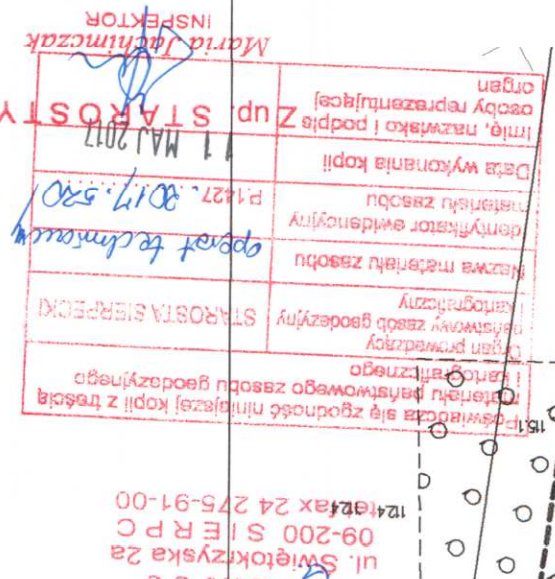 ul. Świętokrzyska 2a
09-200 SIERPC
tel/fax 24 275-91-00
124
12.4
15.1
Poświadcza się zgodność niniejszej kopii z treścią
materiału państwowego zasobu geodezyjnego
i kartograficznego
Organ prowadzący
państwowy zasób geodezyjny
i kartograficzny
STAROSTA SIERPECKI
Nazwa materiału zasobu
operat techniczny
dentyfikator ewidencyjny
materiału zasobu
P.1427. 2017. 520
Data wykonania kopii
11 MAJ 2017
Imię, nazwisko i podpis
osoby reprezentującej
organ
Z up. STAROSTY
Maria Jachimczak
INSPEKTOR